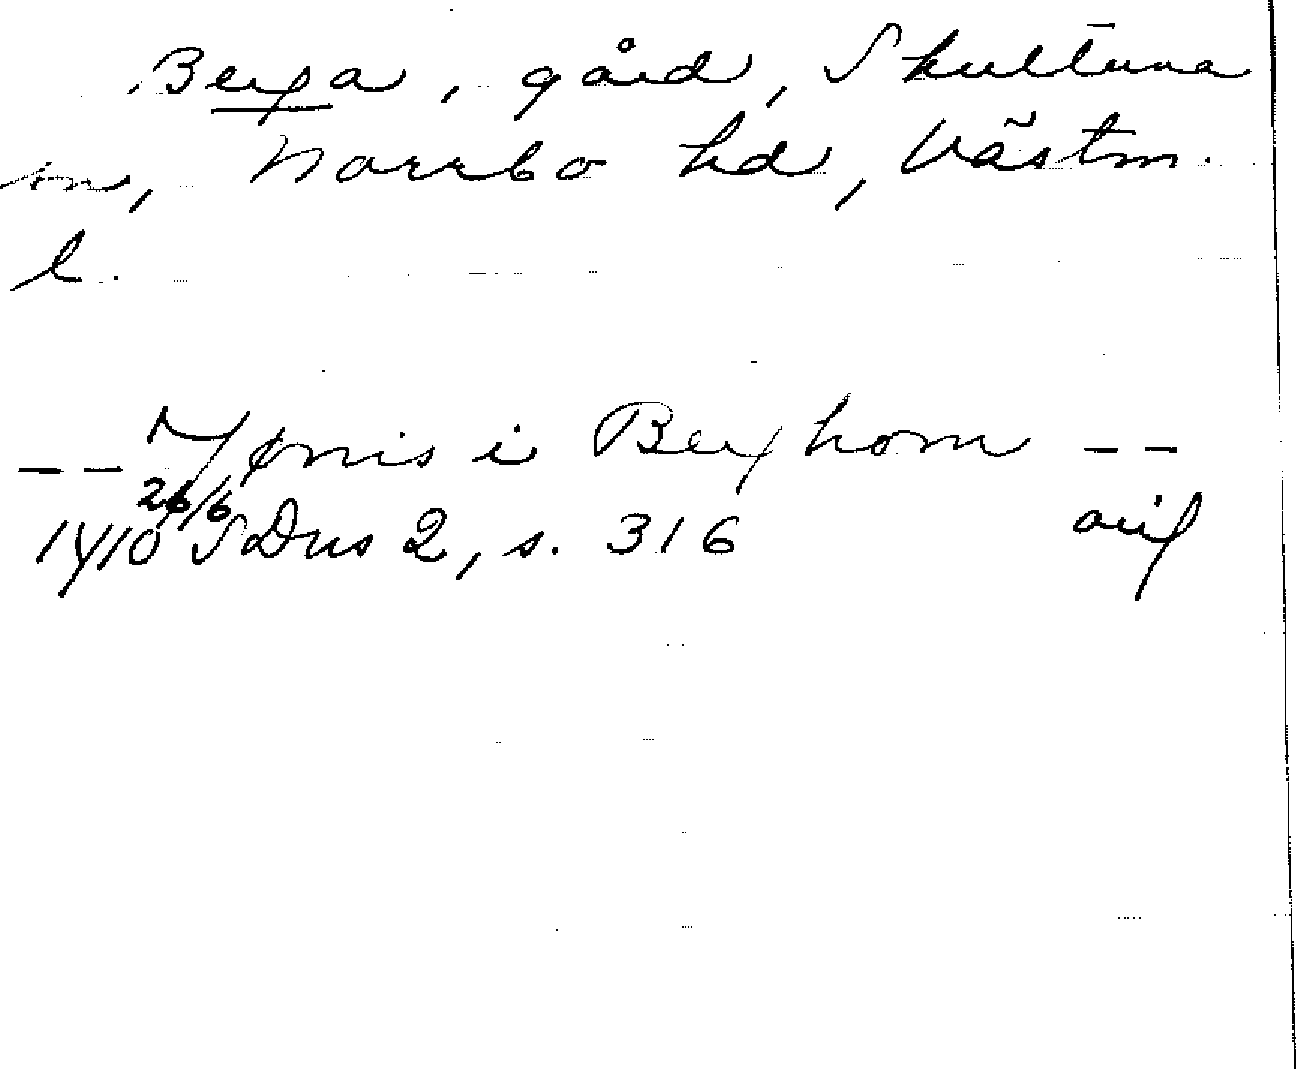 Berga, gård, Skultuna
sn, Norrbo hd, Västm.
l.
-- Tønis i Berghom --
1410 26/6 SDns 2, s. 316 orig